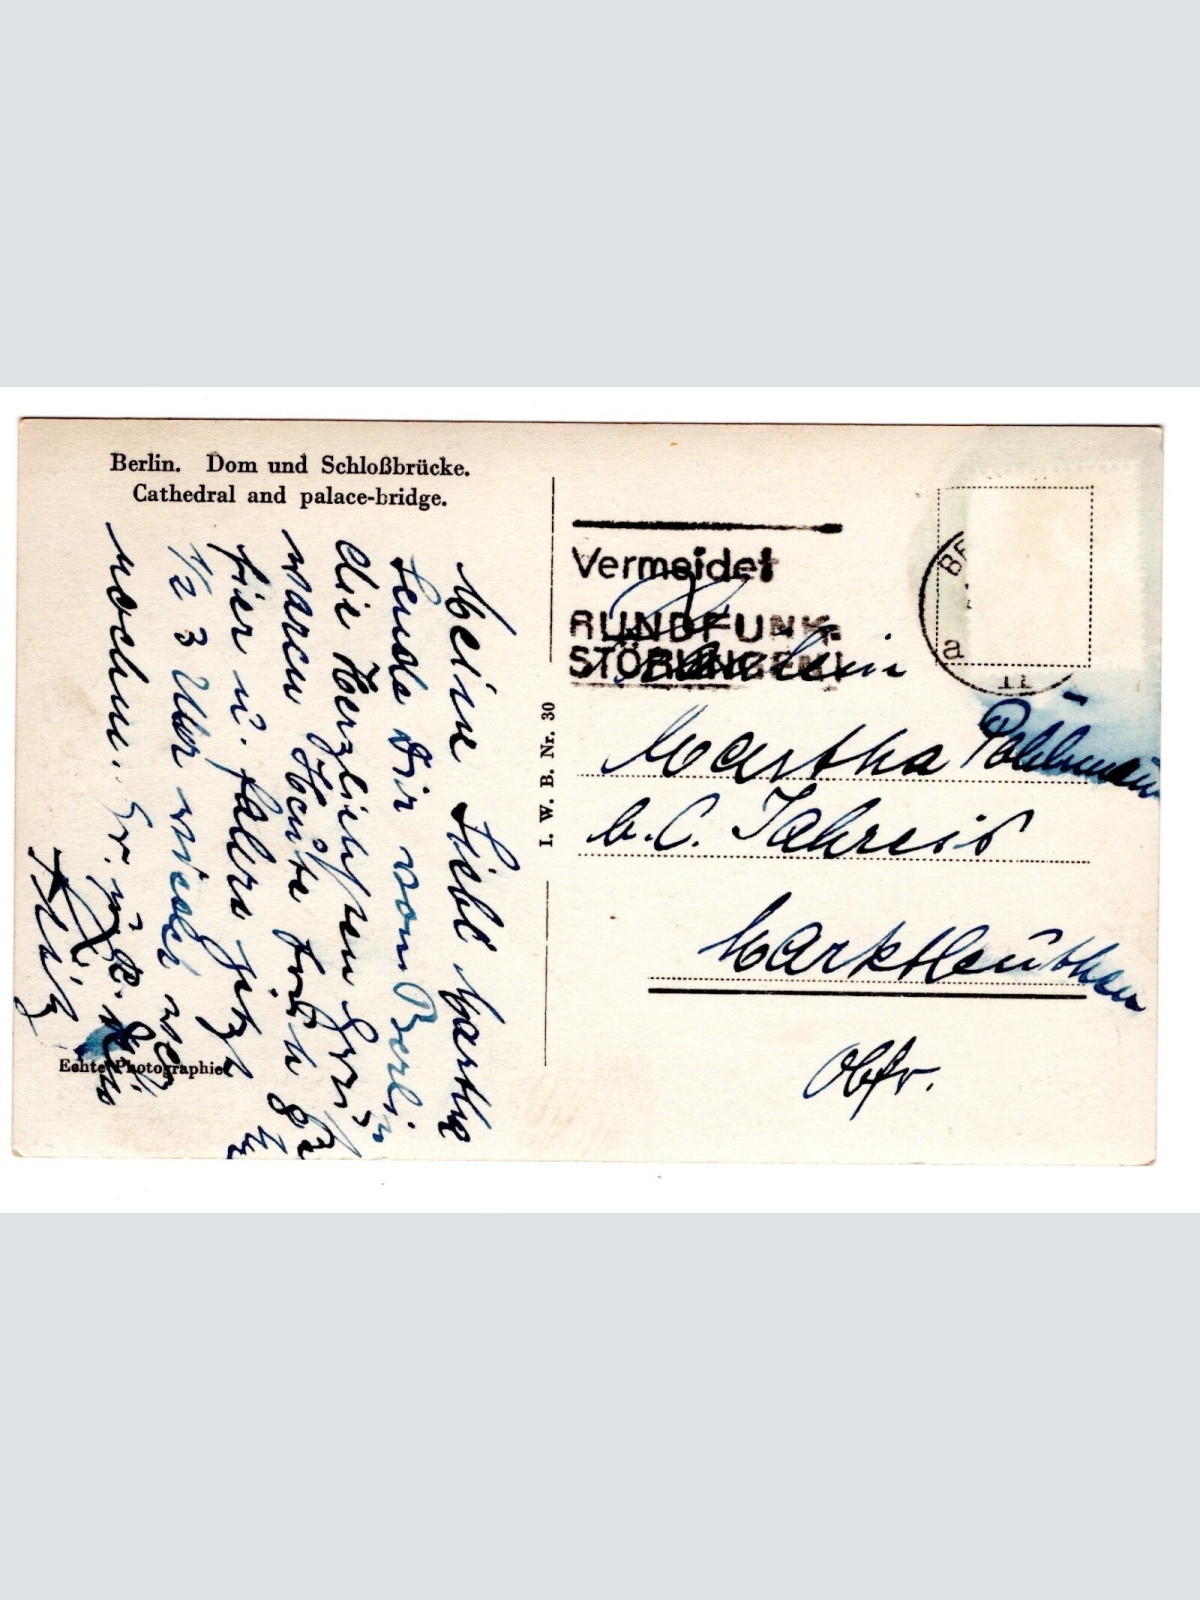 Berlin. Dom und Schloßbrücke.
Cathedral and palace-bridge.
Meine Liebe Martha
Sende Dir vom Berlin
die Herzlichsten Grüß
waren Heute früh
hier u. fahren jetzt
1/2 3 Uhr wieder
Echte Photographie
I. W. B. Nr. 30
Vermeidet
RUNDFUNK-
STÖRUNGEN!
a
11
Fräulein
Martha Pöhlmann
b. C. Jahreis
Marktleuthen
Obfr.